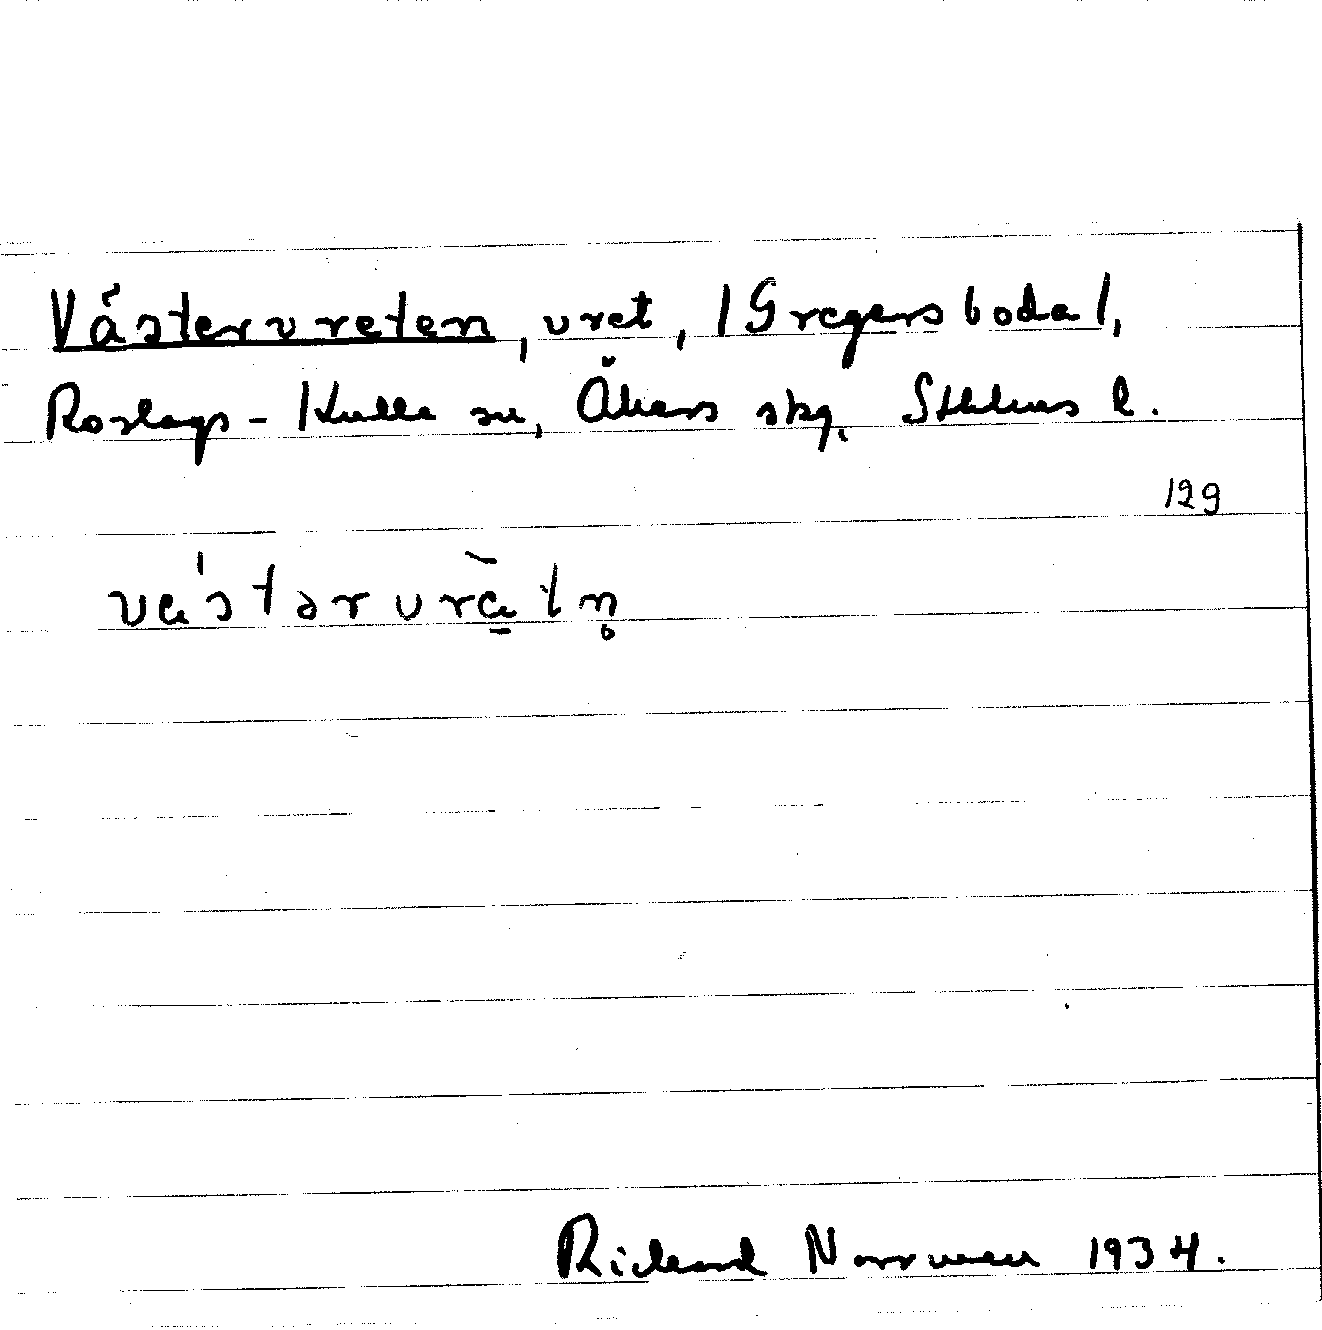 Västervreten, vret, /Gregersboda/,
Roslags-Kulla sn, Åkers skg. Sthlms l.
129
västərvrätn̥
Rickard Norrman 1934.